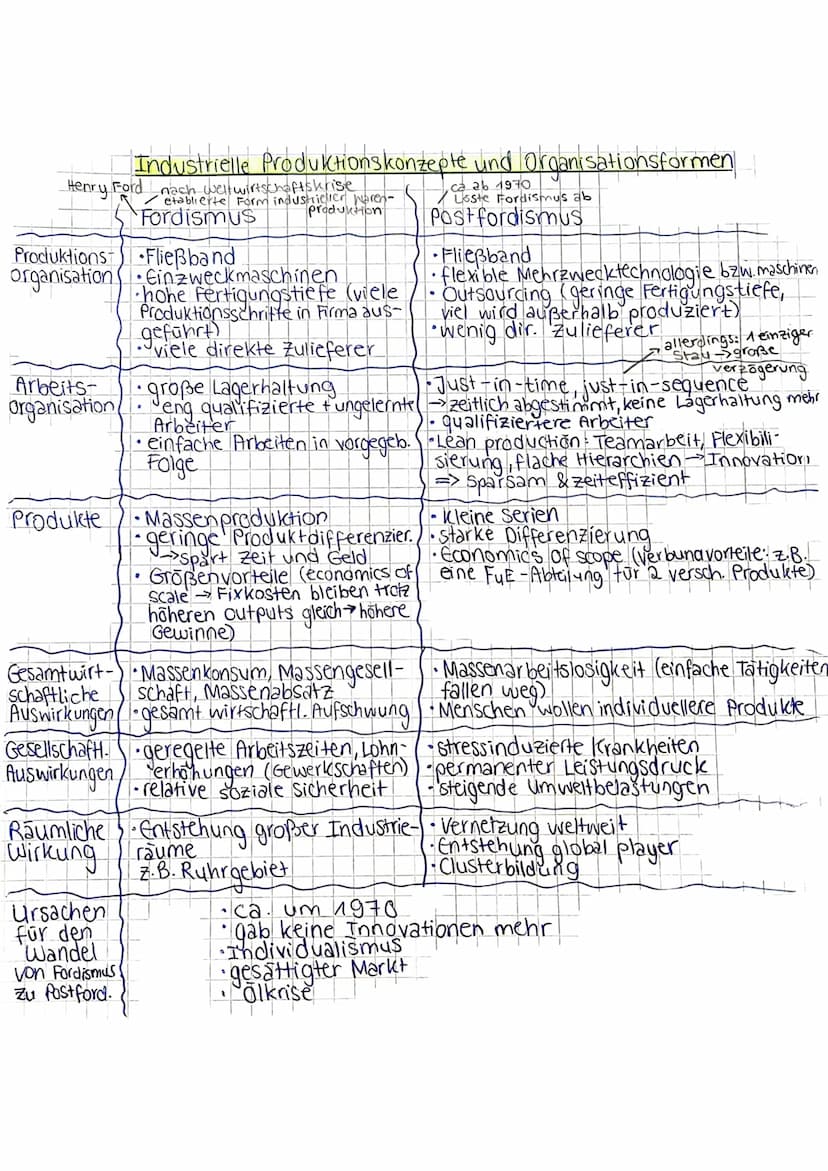 Industrielle Produktionskonzepte und Organisationsformen
Henry Ford
nach Weltwirtschaftskrise
etablierte Form industrieller Waren-
produktion
Fordismus
ca ab 1970
löste Fordismus ab
Postfordismus
Produktions-
organisation
• Fließband
• Einzweckmaschinen
• hohe Fertigungstiefe (viele
Produktionsschritte in Firma aus-
geführt)
• viele direkte Zulieferer
• Fließband
• flexible Mehrzwecktechnologie bzw. maschinen
• Outsourcing (geringe Fertigungstiefe,
viel wird außerhalb produziert)
• wenig dir. Zulieferer
allerdings: 1 einziger
Stau → große
verzögerung
Arbeits-
organisation
• große Lagerhaltung
• eng qualifizierte + ungelernte
Arbeiter
• einfache Arbeiten in vorgegeb.
Folge
• Just-in-time, just-in-sequence
→ zeitlich abgestimmt, keine Lagerhaltung mehr
• qualifiziertere Arbeiter
• Lean production: Teamarbeit, Flexibili-
sierung, flache Hierarchien → Innovation
=> sparsam & zeiteffizient
Produkte
• Massenproduktion
• geringe Produktdifferenzier.
→ spart Zeit und Geld
• Größenvorteile (economics of
scale → Fixkosten bleiben trotz
höheren outputs gleich → höhere
Gewinne)
• Kleine Serien
• starke Differenzierung
• Economics of scope (Verbundvorteile: z.B.
eine FuE-Abteilung für 2 versch. Produkte)
Gesamtwirt-
schaftliche
Auswirkungen
• Massenkonsum, Massengesell-
schaft, Massenabsatz
• gesamt wirtschaftl. Aufschwung
• Massenarbeitslosigkeit (einfache Tätigkeiten
fallen weg)
• Menschen wollen individuellere Produkte
Gesellschaftl.
Auswirkungen
• geregelte Arbeitszeiten, Lohn-
erhöhungen (Gewerkschaften)
• relative soziale Sicherheit
• stressinduzierte Krankheiten
• permanenter Leistungsdruck
• steigende Umweltbelastungen
Räumliche
Wirkung
• Entstehung großer Industrie-
räume
z.B. Ruhrgebiet
• Vernetzung weltweit
• Entstehung global player
• Clusterbildung
Ursachen
für den
Wandel
von Fordismus
zu Postford.
• ca. um 1970
• gab keine Innovationen mehr
• Individualismus
• gesättigter Markt
• Ölkrise